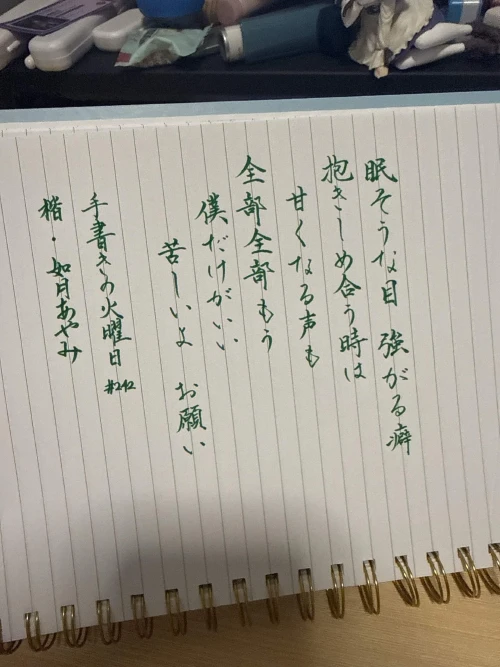 眠そうな目 強がる癖
抱きしめ合う時は
甘くなる声も
全部全部もう
僕だけがいい
苦しいよ お願い
手書きの火曜日 #242
楷・如月あやみ